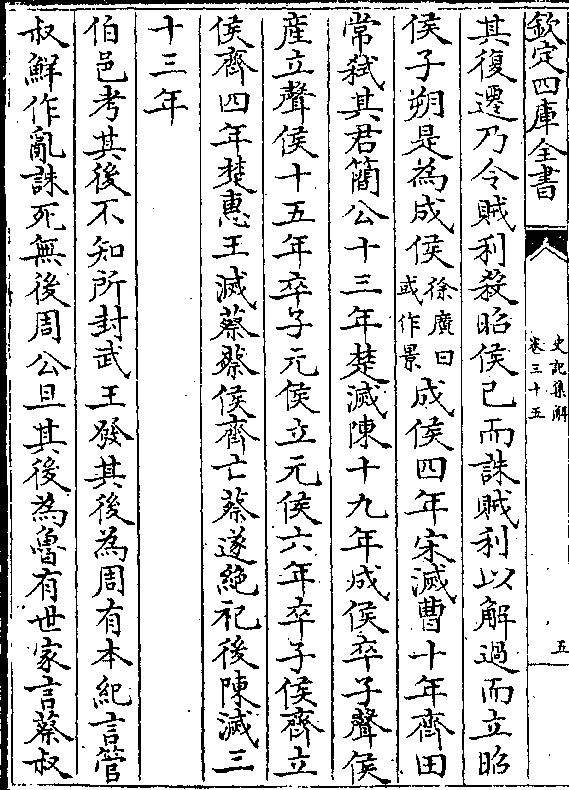 欽定四庫全書
史記集解
卷三十五
五
其復遷乃令賊利殺昭侯已而誅賊利以解過而立昭
侯子朔是為成侯徐廣曰或作景成侯四年宋滅曹十年齊田
常弒其君簡公十三年楚滅陳十九年成侯卒子聲侯
產立聲侯十五年卒子元侯立元侯六年卒子侯齊立
侯齊四年楚惠王滅蔡蔡侯齊亡蔡遂絕祀後陳滅三
十三年
伯邑考其後不知所封武王發其後為周有本紀言管
叔鮮作亂誅死無後周公旦其後為魯有世家言蔡叔